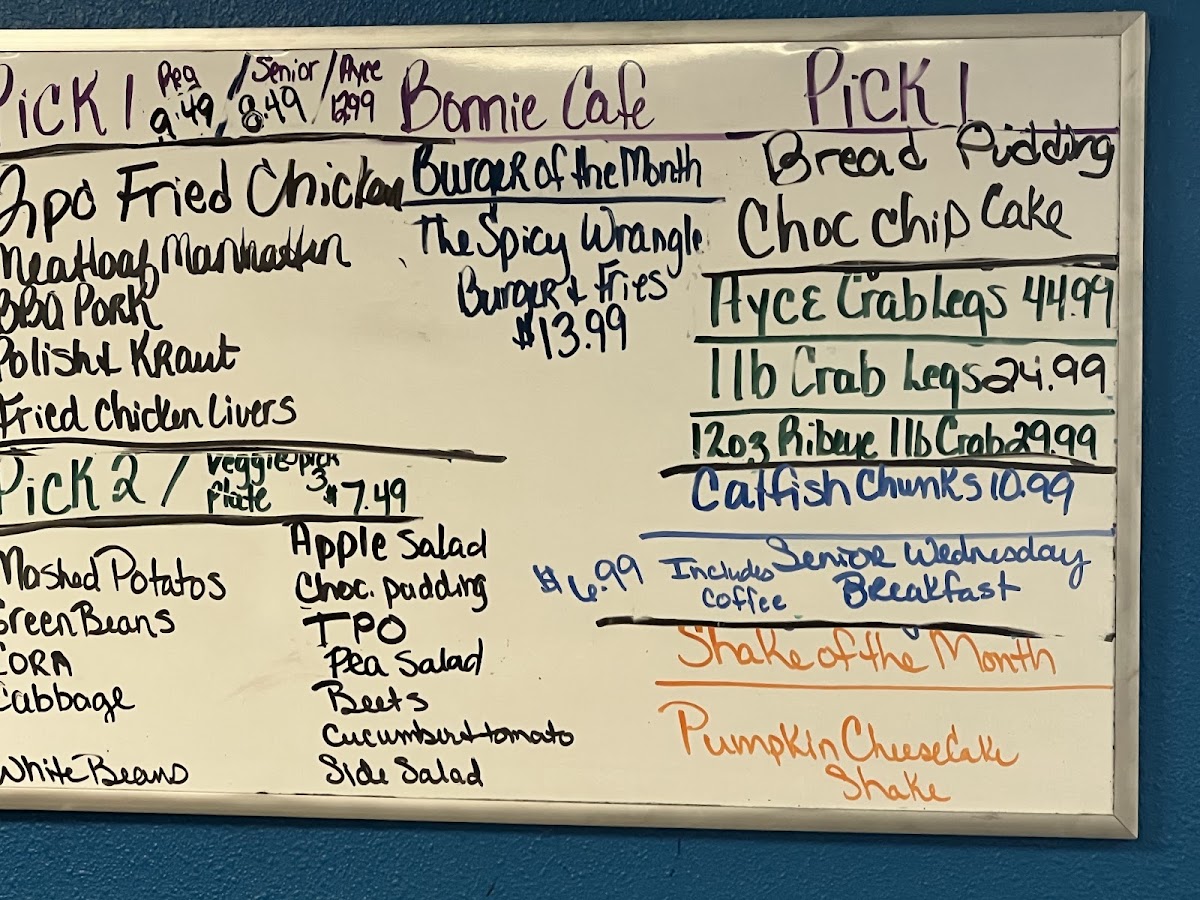 Pick 1 Reg 9.49 / Senior 8.49 / Ayce 12.99
2pc Fried Chicken
Meatloaf Manhatten
BBQ Pork
Polish & Kraut
Fried Chicken Livers
Pick 2 / Veggie pick 3 Plate $7.49
Mashed Potatos
Green Beans
Corn
Cabbage
White Beans
Apple Salad
Choc. pudding
TPO
Pea Salad
Beets
Cucumber + tomato
Side Salad
Bonnie Cafe
Burger of the Month
The Spicy Wrangle
Burger & Fries
$13.99
Pick 1
Bread Pudding
Choc Chip Cake
Ayce Crab Legs 44.99
1 lb Crab Legs 24.99
12oz Ribeye 1 lb Crab 29.99
Catfish Chunks 10.99
Senior Wednesday
Breakfast
Includes
Coffee
$6.99
Shake of the Month
Pumpkin Cheesecake
Shake